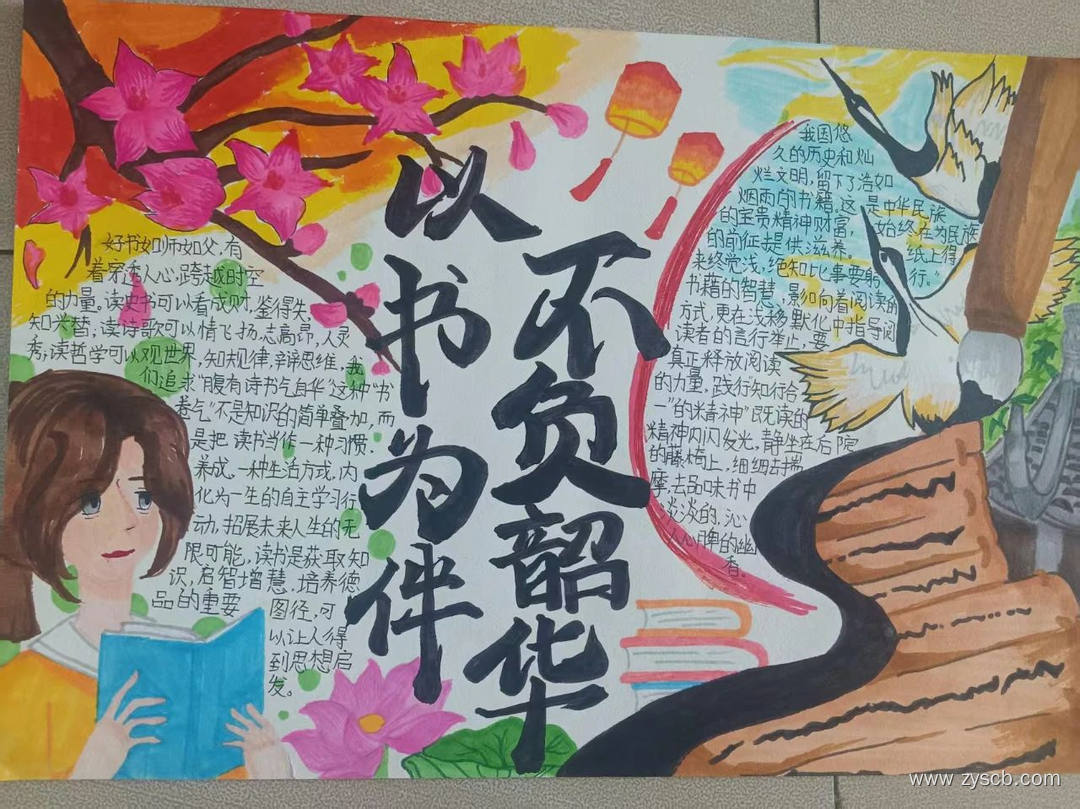 以书为伴
不负韶华
好书如师如父,有
着穿透人心,跨越时空
的力量。读史书可以看成败,鉴得失,
知兴替;读诗歌可以情飞扬、志高昂,人灵
秀;读哲学可以观世界,知规律,辩思维,我
们追求“腹有诗书气自华”这种“书
卷气”不是知识的简单叠加,而
是把读书当作一种习惯.
养成一种生活方式,内
化为一生的自主学习行
动,拓展未来人生的无
限可能,读书是获取知
识,启智增慧、培养德
品的重要图径,可
以让人得
到思想启
发。
我国悠
久的历史和灿
烂文明,留下了浩如
烟雨的书籍,这是中华民族
的宝贵精神财富,始终在为民族
的前征提供滋养。纸上得
来终觉浅,绝知比事要躬行。”
书籍的智慧,影向着阅读的
方式,更在浅移默化中指导阅
读者的言行举止,要
真正释放阅读
的力量,践行知行合
一”的米精神”既读的
精神闪闪发光,静坐在后院
的藤椅上,细细去揣
摩,去品味书中
淡淡的,沁
人心脾的幽
香。
www.zyscb.com